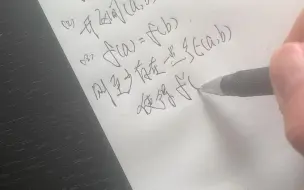 (2) 开区间(a,b)
(3) f(a)=f(b)
则至少存在一点ξ∈(a,b)
使得f(